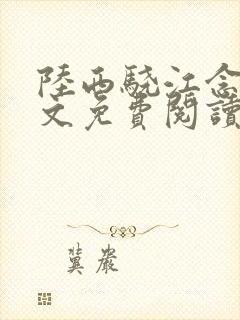 陸西驍江念
文免費閱讀
冀嚴